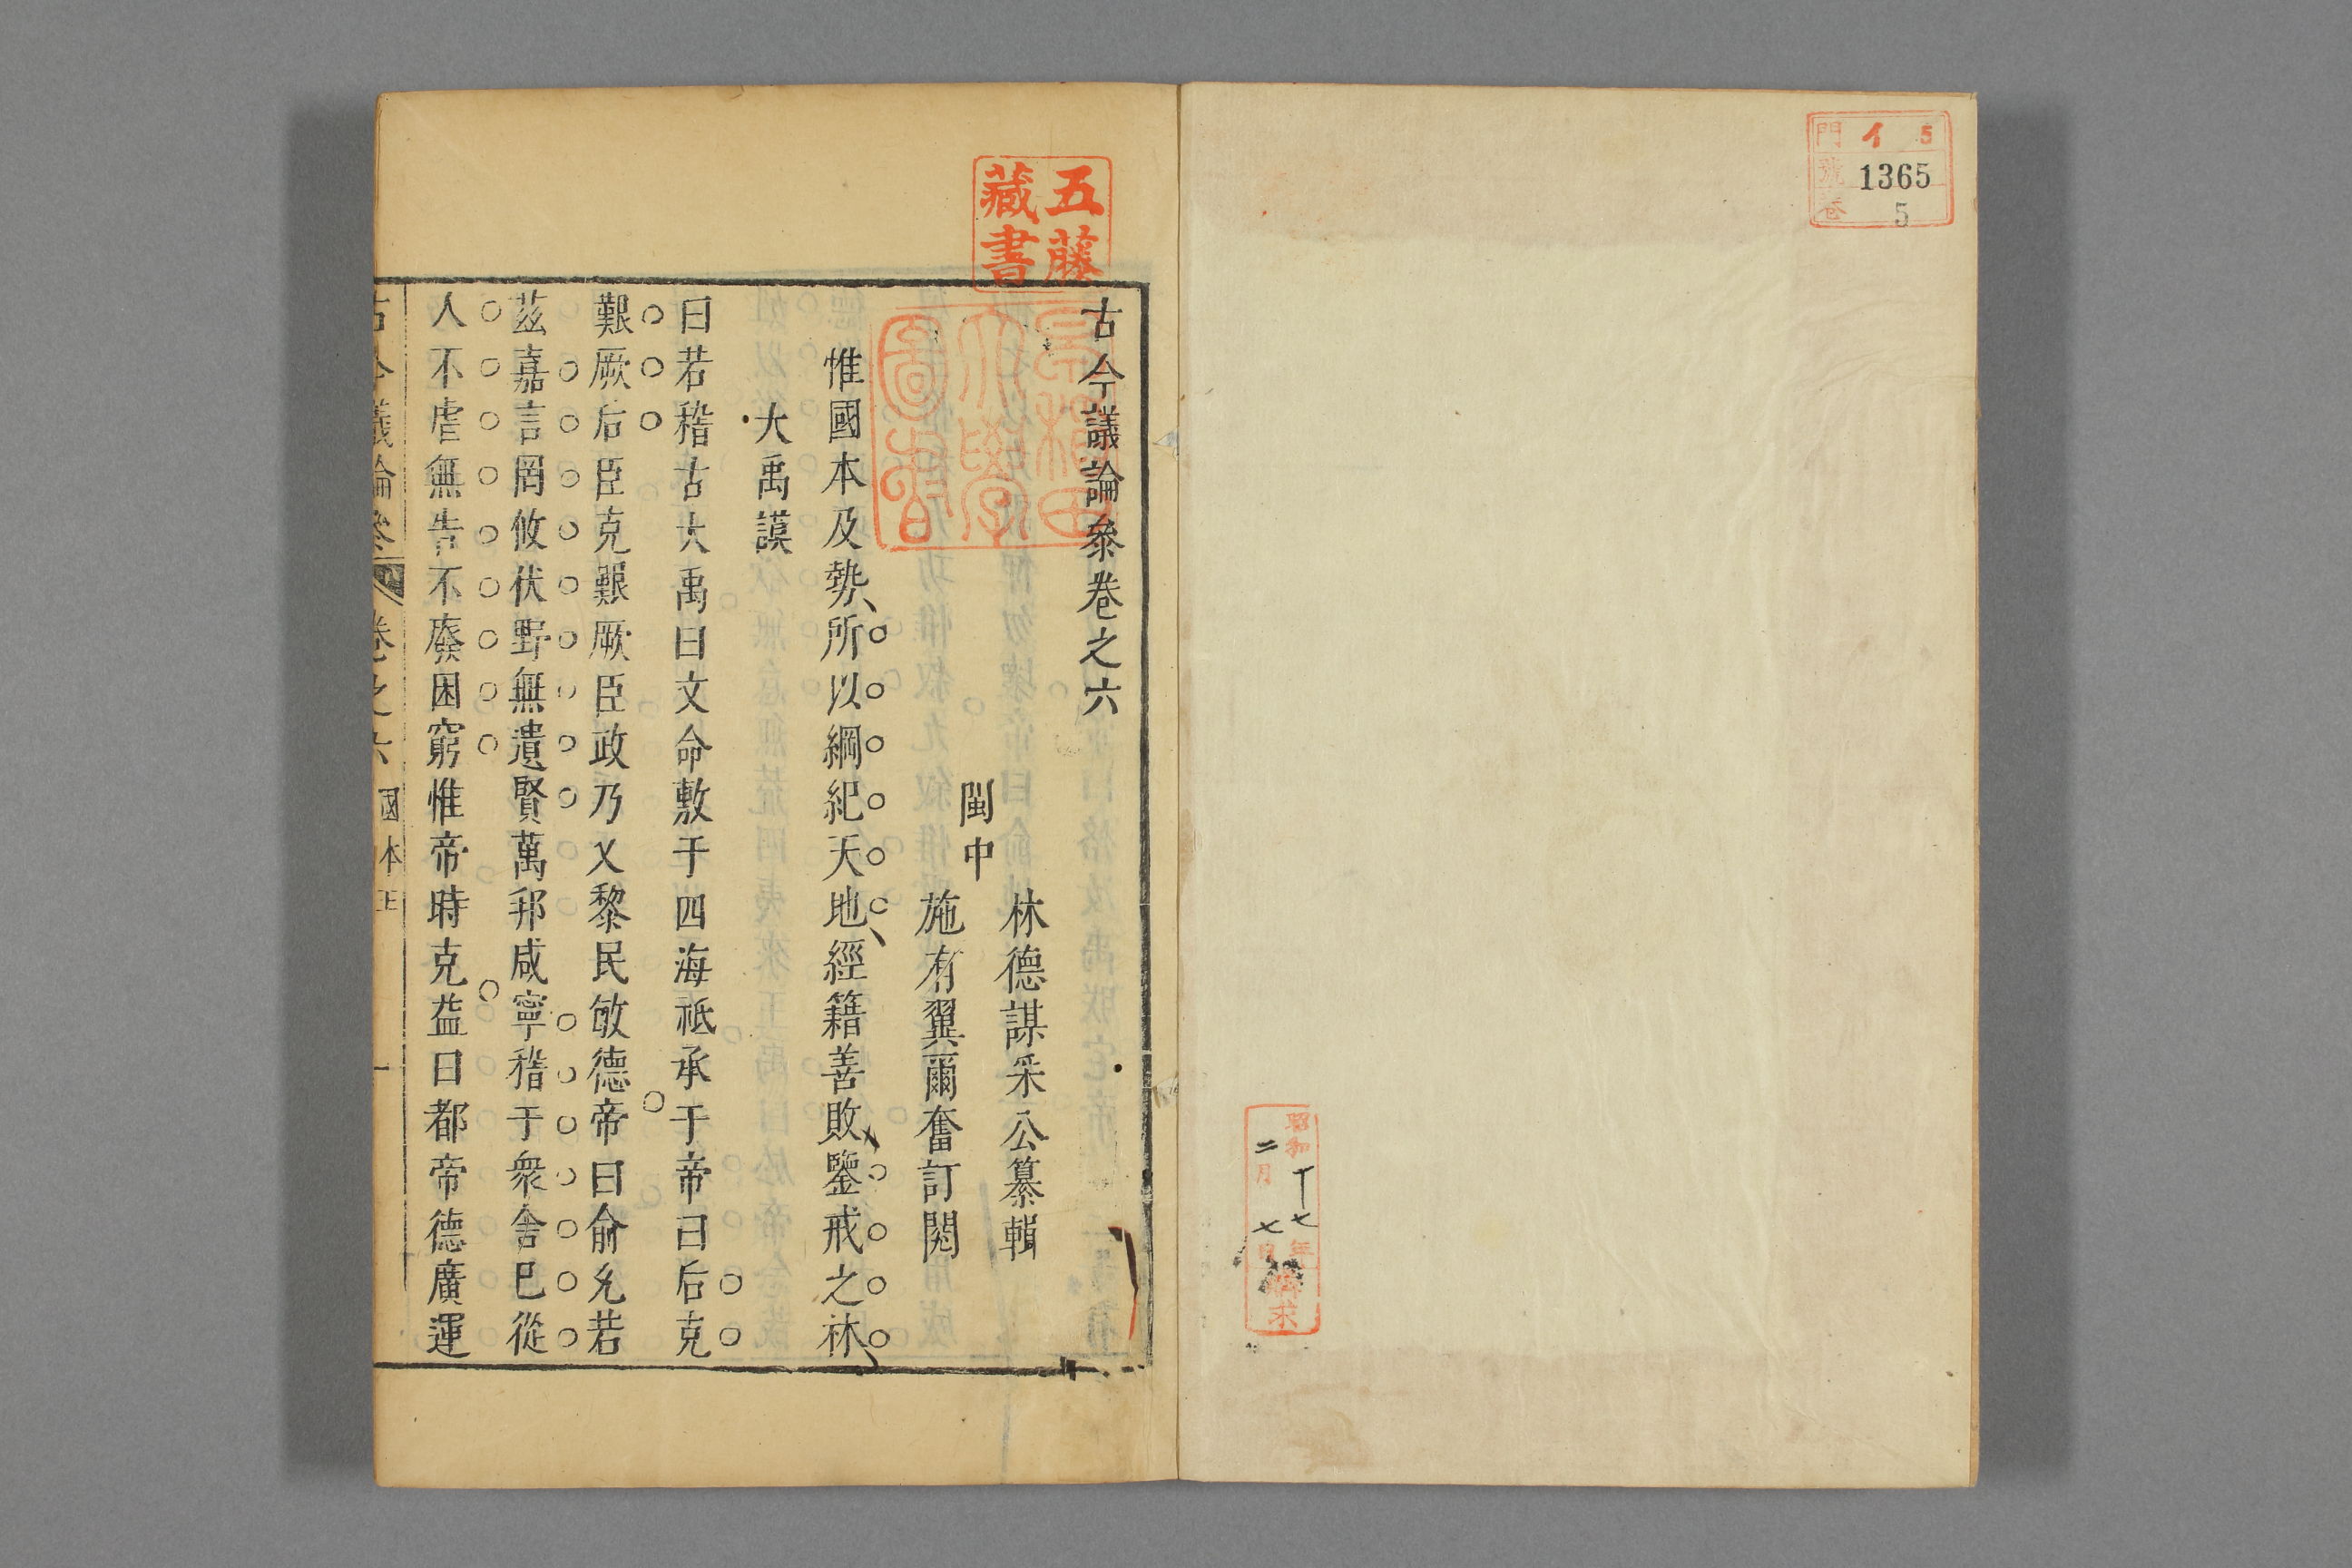 門 イ 5
號 1365
卷 5
昭和十七年
二月七日
購求
五藤
藏書
早稻田
大學
圖書
古今議論參卷之六
閩中
林德謀采公纂輯
施有翼爾奮訂閱
惟國本及勢所以綱紀天地經籍善敗鑒戒之林
大禹謨
曰若稽古大禹曰文命敷于四海祗承于帝曰后克
艱厥后臣克艱厥臣政乃乂黎民敏德帝曰俞允若
茲嘉言罔攸伏野無遺賢萬邦咸寧稽于衆舍巳從
人不虐無告不廢困窮惟帝時克益曰都帝德廣運
古今議論參 卷之六 國本 一